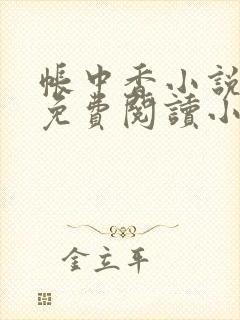 帳中香小說
免費閱讀小
金立平